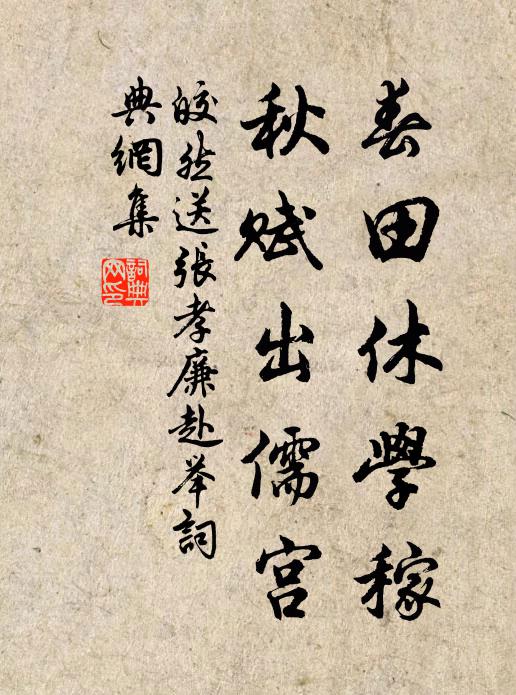 春田休學稼
秋賦出儒宮
皎然送張孝廉赴举詞
典網集
詞典
网印